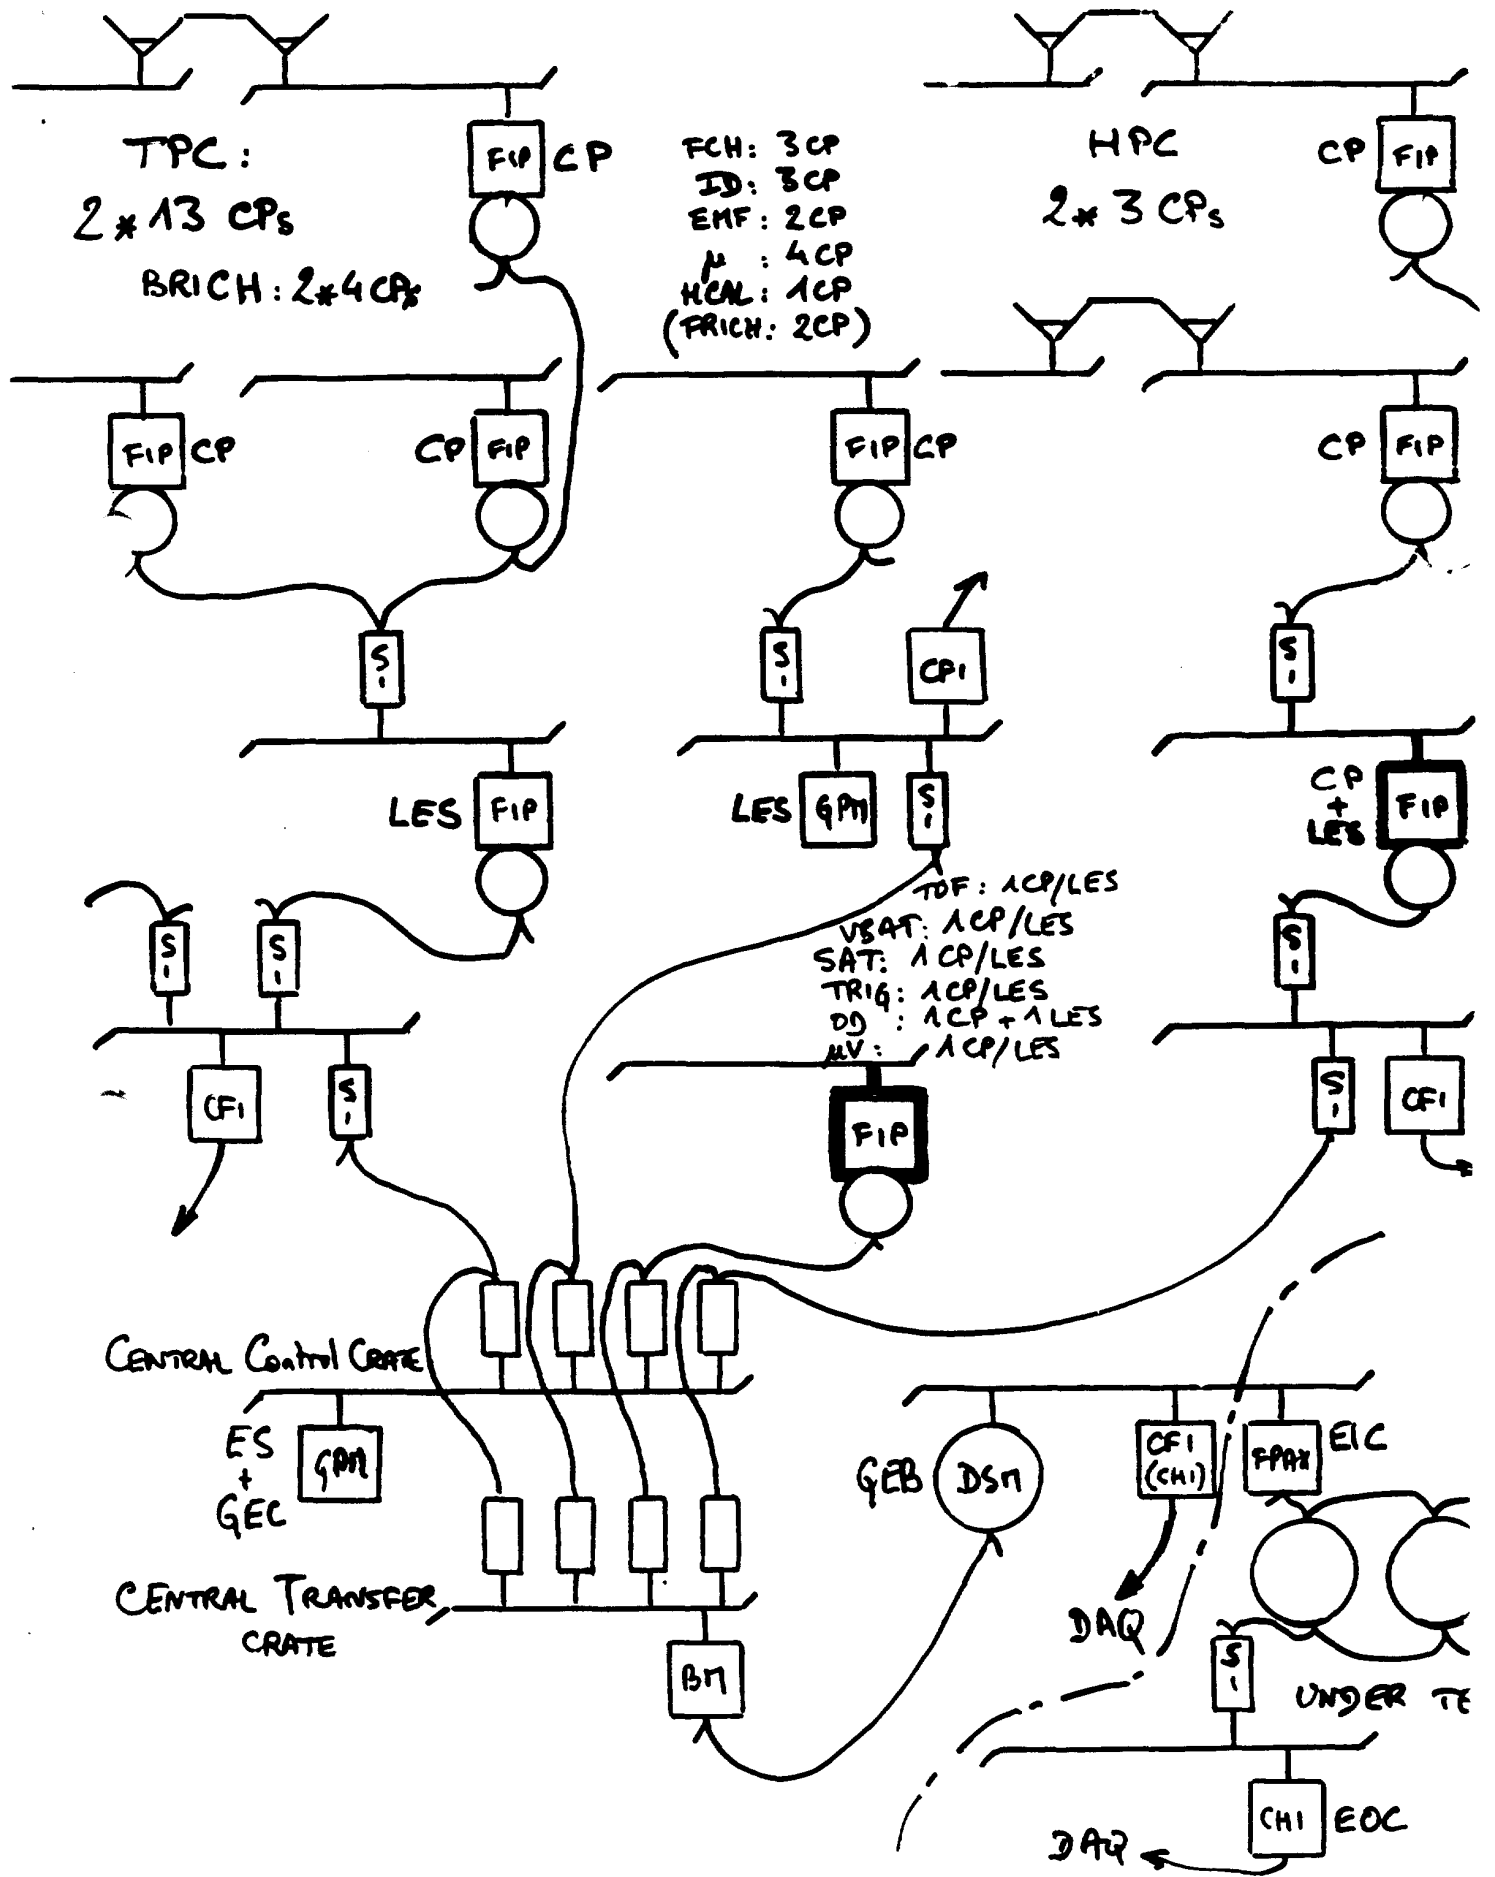 TPC:
2*13 CPs
BRICH: 2*4 CPs
FIP CP
FCH: 3CP
ID: 3CP
EMF: 2CP
μ : 4CP
HCAL: 1CP
(FRICH: 2CP)
HPC
2*3 CPs
CP FIP
FIP CP
CP FIP
FIP CP
CP FIP
SI
SI
CPI
SI
LES FIP
LES GPM
SI
CP
+
LES
FIP
SI
SI
TOF: 1CP/LES
VSAT: 1CP/LES
SAT: 1CP/LES
TRIG: 1CP/LES
OD : 1CP + 1LES
μV: 1CP/LES
SI
CFI
SI
FIP
SI
CFI
CENTRAL Control CRATE
ES
+
GEC
GPM
GEB DSM
CFI
(CHI)
FPAX
EIC
DAQ
CENTRAL TRANSFER
CRATE
BM
SI
UNDER TE
CHI EOC
DAQ